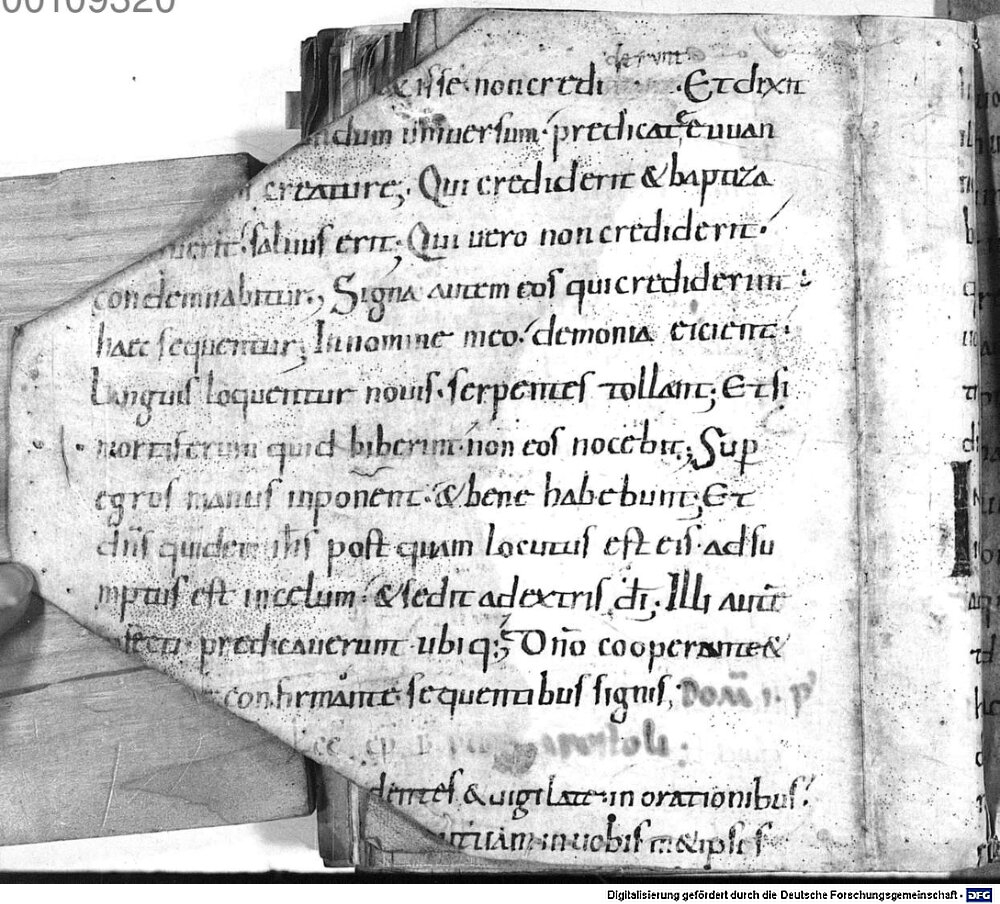 00109320
derunt
& isse non credi . Et dixit
ndum universum predicate euuan
creature; Qui crediderit & baptiza
salvus erit; Qui uero non crediderit.
condemnabitur; Signa autem eos qui crediderint
haec sequentur; In nomine meo demonia eicient.
Linguis loquentur nouis. serpentes tollant; Et si
mortiferum quid biberint non eos nocebit; Sup
egros manus inponent. & bene habebunt; Et
dns quidem ihs post quam locutus est eis. adsu
mptus est in celum. & sedit a dextris di. Illi aut
predicauerunt ubiq; Dno cooperante &
confirmante sequentibus signis; Dom i. p
apostoli.
dentes & uigilate in orationibus.
in uobis m& ipsis
Digitalisierung gefördert durch die Deutsche Forschungsgemeinschaft - DFG